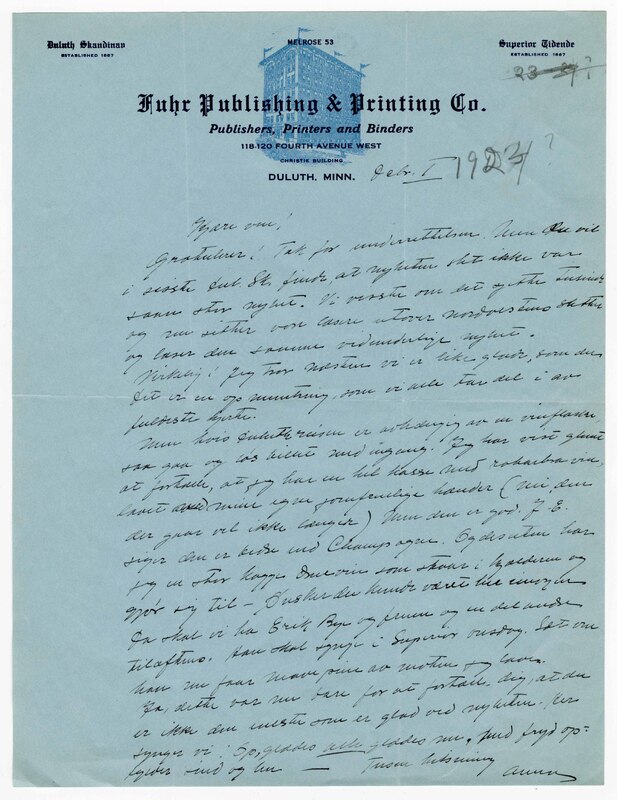 Duluth Skandinav
ESTABLISHED 1887
MELROSE 53
Superior Tidende
ESTABLISHED 1887
23-24?
Fuhr Publishing & Printing Co.
Publishers, Printers and Binders
118-120 FOURTH AVENUE WEST
CHRISTIE BUILDING
DULUTH, MINN.
Febr. 1 1923/4?
Kjære ven!
Gratulerer! Tak for underrettelsen. Men du vil
i sidste Dul. Sk. finde, at nyheten slet ikke var
saan stor nyhet. Vi visste om det og atte tusinde
og nu sitter vore læsere utover nordvestens
og læser den samme vidunderlige nyhet.
Virkelig! Jeg tror næsten vi er like glade, som du
Det er en opmuntring, som vi alle tar del i av
fuldeste hjerte.
Men hvis Duluthreisen er avhængig av en vinflaske
saa gaa og løs billet med engang. Jeg har visst glemt
at fortælle, at jeg har en hel kasse med rabarbravin,
lavet med mine egne jomfruelige hænder (nei, den
der gaar vel ikke længer) Men den er god. J. E.
siger den er bedre end Champagne. Og desuten har
jeg en stor kagge Druevin som staar i kjælderen og
gjør sig til – Ønsker du kunde været her
Da skal vi ha Erik Bye og fruen og en del andre
tilaftens. Han skal synge i Superior onsdag. Sæt om
han nu faar mavepine av maten jeg laver.
Ja, dette var nu bare for at fortælle dig, at du
er ikke den eneste som er glad ved nyheten. Her
synger vi: Op, glædes alle glædes nu, med fryd op-
løfter sind og hu —
Tusen hilsninger
Anna